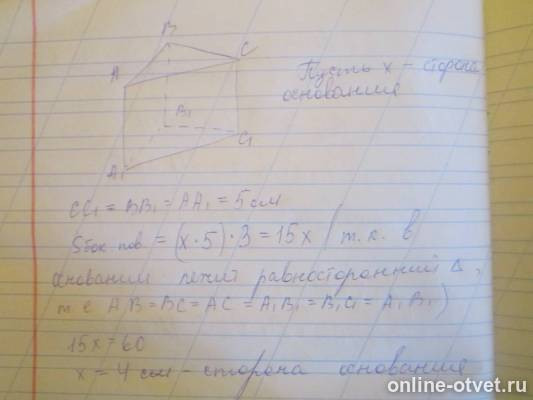 B
C
A
Пусть x – сторона
основания
B₁
C₁
A₁
CC₁ = BB₁ = AA₁ = 5 см
Sбок. пов = (x·5)·3 = 15x (т.к. в
основании лежит равносторонний Δ,
т е AB = BC = AC = A₁B₁ = B₁C₁ = A₁B₁)
15x = 60
x = 4 см – сторона основания
online-otvet.ru